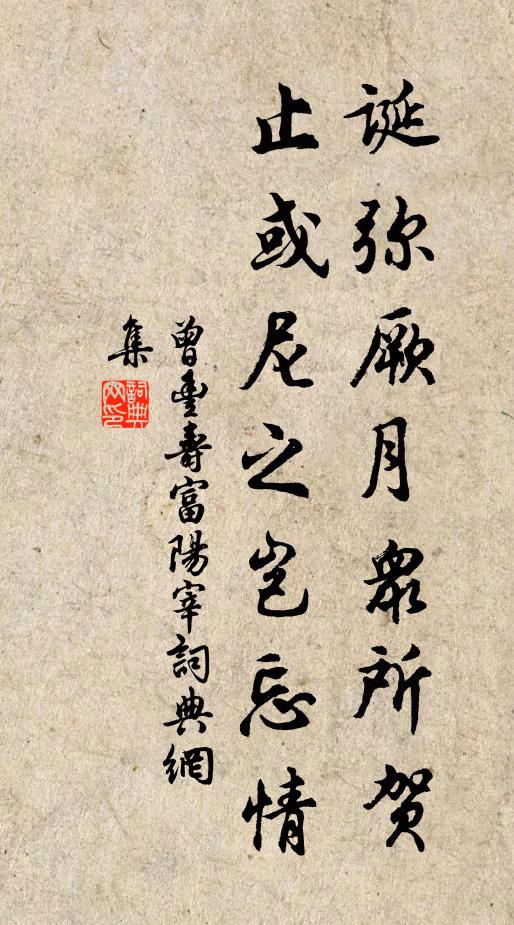 誕弥厥月眾所賀
止或尼之岂忘情
曾豊壽富陽宰詞典網
集
詞典网印